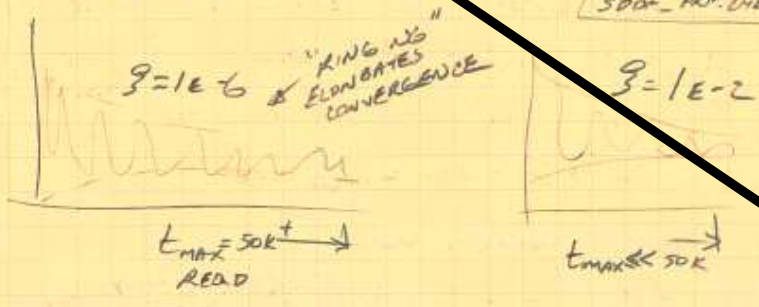 ζ=1E-6
"RINGING"
ELONGATES
CONVERGENCE
t MAX = 50K+
REQD
ζ=1E-2
t MAX << 50K